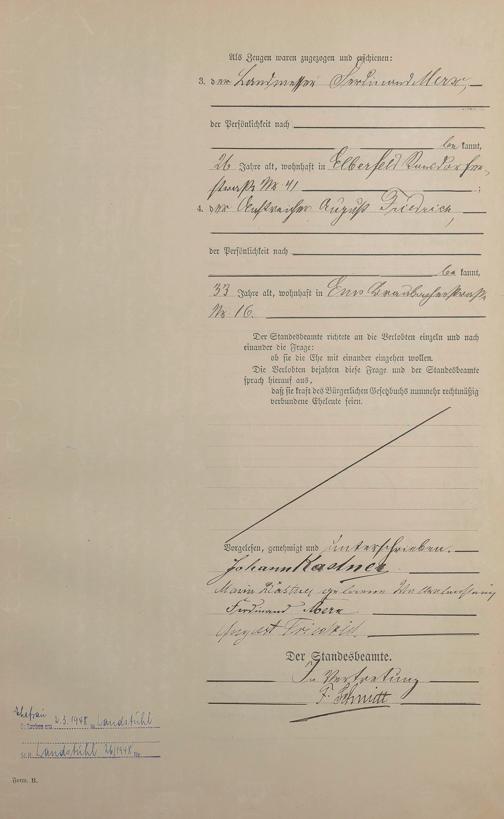 Als Zeugen waren zugezogen und erschienen:
3. der Landmesser Ferdinand Merx,
der Persönlichkeit nach
be kannt,
26 Jahre alt, wohnhaft in Elberfeld Ronsdorfer-
straße Nr. 41 ;
4. der Anstreicher August Friedrich,
der Persönlichkeit nach
be kannt,
33 Jahre alt, wohnhaft in Ems Braubacherstraße
Nr. 16.
Der Standesbeamte richtete an die Verlobten einzeln und nach
einander die Frage:
ob sie die Ehe mit einander eingehen wollen.
Die Verlobten bejahten diese Frage und der Standesbeamte
sprach hierauf aus,
daß sie kraft des Bürgerlichen Gesetzbuchs nunmehr rechtmäßig
verbundene Eheleute seien.
Vorgelesen, genehmigt und unterschrieben.
Johann Kastner
Maria Kastner geborene
Ferdinand Merx
August Friedrich
Der Standesbeamte.
In Vertretung
F. Schmitt
Ehefrau
2.3.1948 in Landstuhl
Landstuhl 26/1948
Form. B.